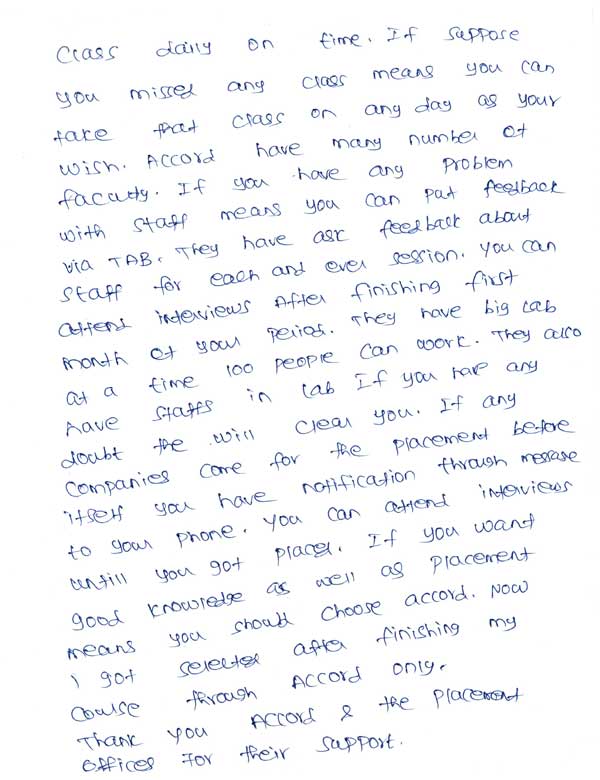 Class daily on time. If suppose
you missed any class means you can
take that class on any day as your
wish. Accord have many number of
faculty. If you have any problem
with staff means you can put feedback
via TAB. They have ask feedback about
staff for each and ever session. You can
attend interviews After finishing first
month of your period. They have big lab
at a time 100 people can work. They also
have staffs in lab If you have any
doubt the will clear you. If any
companies come for the placement before
itself you have notification through message
to your phone. You can attend interviews
untill you got placed. If you want
good knowledge as well as placement
means you should choose accord. Now
I got selected after finishing my
course through Accord only.
Thank you Accord & the placement
offices for their support.